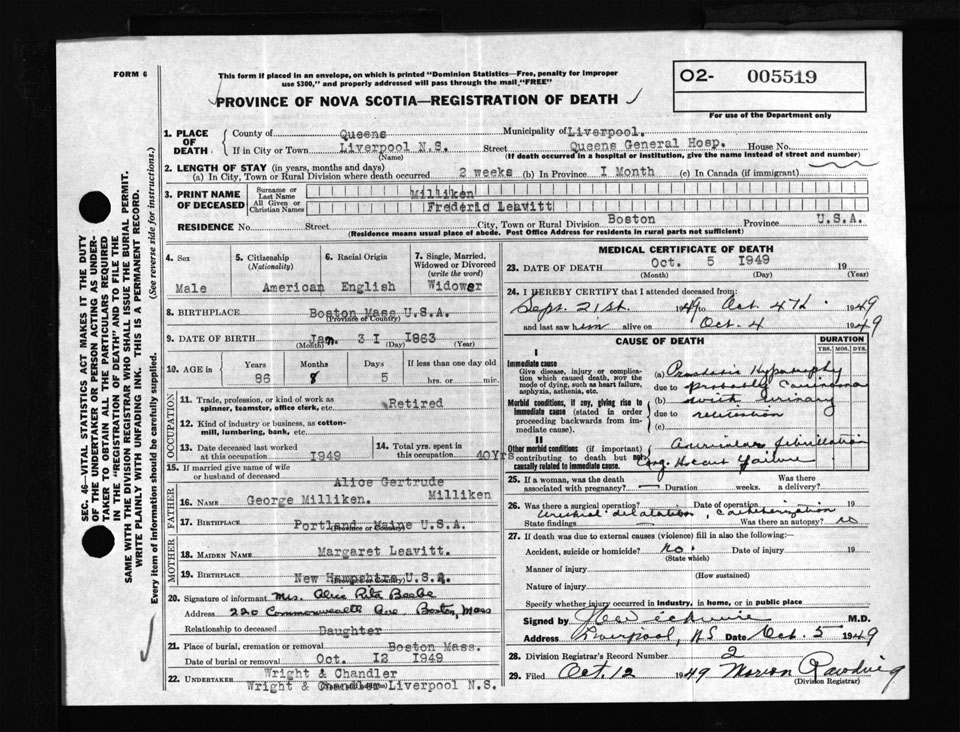 FORM 6
This form if placed in an envelope, on which is printed "Dominion Statistics—Free, penalty for improper
use $300," and properly addressed will pass through the mail "FREE"
O2- 005519
For use of the Department only
PROVINCE OF NOVA SCOTIA—REGISTRATION OF DEATH
SEC. 46—VITAL STATISTICS ACT MAKES IT THE DUTY
OF THE UNDERTAKER OR PERSON ACTING AS UNDER-
TAKER TO OBTAIN ALL THE PARTICULARS REQUIRED
IN THE "REGISTRATION OF DEATH" AND TO FILE THE
SAME WITH THE DIVISION REGISTRAR WHO SHALL ISSUE THE BURIAL PERMIT.
WRITE PLAINLY WITH UNFADING INK. THIS IS A PERMANENT RECORD.
Every item of information should be carefully supplied. (See reverse side for instructions.)
1. PLACE OF DEATH County of Queens Municipality of Liverpool.
If in City or Town Liverpool N.S. (Name) Street Queens General Hosp. House No.
(If death occurred in a hospital or institution, give the name instead of street and number)
2. LENGTH OF STAY (in years, months and days)
(a) In City, Town or Rural Division where death occurred 2 weeks (b) In Province I Month (c) In Canada (if immigrant)
3. PRINT NAME OF DECEASED Surname or Last Name Milliken
All Given or Christian Names Frederic Leavitt
RESIDENCE No. Street City, Town or Rural Division Boston Province U.S.A.
(Residence means usual place of abode. Post Office Address for residents in rural parts not sufficient)
4. Sex Male
5. Citizenship (Nationality) American
6. Racial Origin English
7. Single, Married, Widowed or Divorced (write the word) Widower
8. BIRTHPLACE Boston Mass U.S.A.
(Province or Country)
9. DATE OF BIRTH Jan. 3 I 1863
(Month) (Day) (Year)
10. AGE IN Years Months Days If less than one day old
86 8 5 hrs. or min.
OCCUPATION
11. Trade, profession, or kind of work as spinner, teamster, office clerk, etc. Retired
12. Kind of industry or business, as cotton-mill, lumbering, bank, etc.
13. Date deceased last worked at this occupation 1949
14. Total yrs. spent in this occupation 40Yrs
15. If married give name of wife or husband of deceased Alice Gertrude Milliken
FATHER
16. NAME George Milliken.
17. BIRTHPLACE Portland Maine U.S.A.
(Province or Country)
MOTHER
18. MAIDEN NAME Margaret Leavitt.
19. BIRTHPLACE New Hampshire U.S.A.
(Province or Country)
20. Signature of informant Mrs. Alice Rita Beebe
Address 220 Commonwealth Ave Boston, Mass
Relationship to deceased Daughter
21. Place of burial, cremation or removal Boston Mass.
Date of burial or removal Oct. I2 1949
22. UNDERTAKER Wright & Chandler
Wright & Chandler Liverpool N.S.
MEDICAL CERTIFICATE OF DEATH
23. DATE OF DEATH Oct. 5 1949 19
(Month) (Day) (Year)
24. I HEREBY CERTIFY that I attended deceased from:
Sept. 21st. 1949 to Oct. 4th. 1949
and last saw him alive on Oct. 4 1949
CAUSE OF DEATH
DURATION
YRS. MOS. DYS.
I
Immediate cause
Give disease, injury or complication which caused death, NOT the mode of dying, such as heart failure, asphyxia, asthenia, etc.
(a) Prostatic Hypertrophy
due to probably Carcinoma
Morbid conditions, if any, giving rise to immediate cause (stated in order proceeding backwards from immediate cause).
(b) with urinary
due to retention
(c)
II
Other morbid conditions (if important) contributing to death but not causally related to immediate cause.
Auricular fibrillation
Cong. Heart Failure
25. If a woman, was the death associated with pregnancy? — Duration weeks. Was there a delivery?
26. Was there a surgical operation? Date of operation 19
Urethral dilatation, catheterization
State findings — Was there an autopsy? no
27. If death was due to external causes (violence) fill in also the following:
Accident, suicide or homicide? no. Date of injury 19
(State which)
Manner of injury
(How sustained)
Nature of injury
Specify whether injury occurred in industry, in home, or in public place
Signed by M.D.
Address Liverpool, NS Date Oct. 5 1949
28. Division Registrar's Record Number 2
29. Filed Oct. 12 1949 Marion
(Division Registrar)